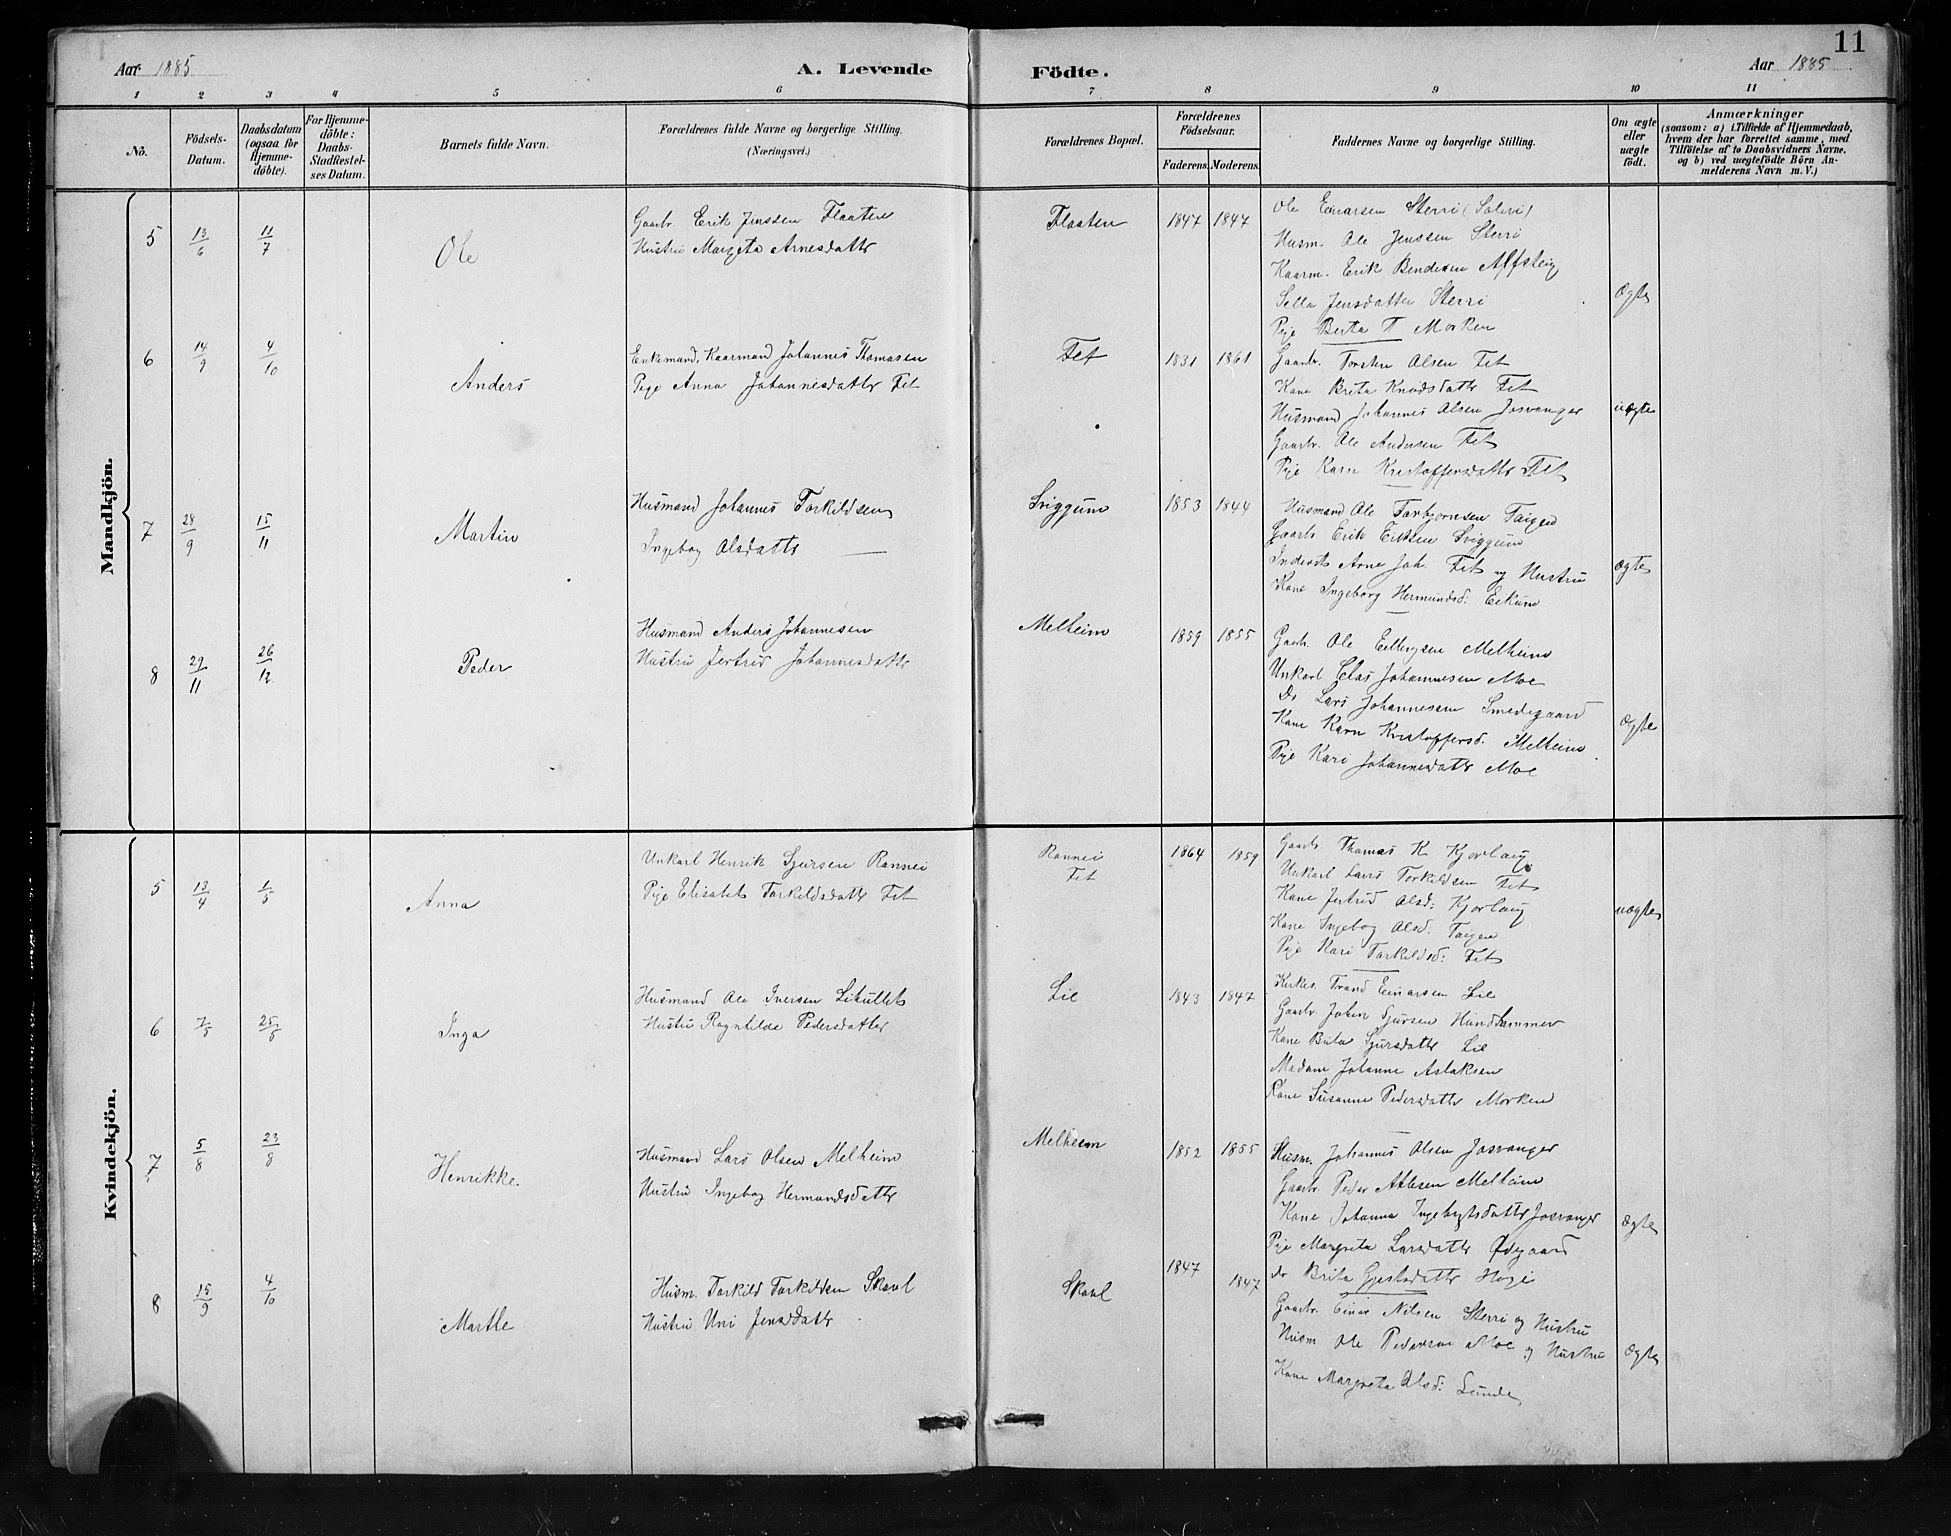 11
Aar 1885
A. Levende
Födte.
Aar 1885
1 2 3 4 5 6 7 8 9 10 11
No.
Födsels-
Datum.
Daabsdatum
(ogsaa for
Hjemme-
döbte).
For Hjemme-
döbte:
Daabs-
Stadfæstel-
ses Datum.
Barnets fulde Navn.
Forældrenes fulde Navne og borgerlige Stilling.
(Næringsvei.)
Forældrenes Bopæl.
Forældrenes
Födselsaar.
Faderens. Moderens.
Faddernes Navne og borgerlige Stilling.
Om ægte
eller
uægte
födt.
Anmærkninger
(saasom: a) i Tilfælde af Hjemmedaab,
hvem der har forrettet samme, med
Tilföielse af to Daabsvidners Navne,
og b) ved uægtefödte Börn An-
melderens Navn m. V.)
Mandkjön.
5 13/6 11/7 Ole
Gaarbr. Erik Jenssen Flaaten
Hustru Margeta Arnesdatter
Flaaten 1847 1847
Ole Einarsen Sterri (Solert)
Husm. Ole Jenssen Sterri
Kaarm. Erik Bendixen Alfsteig
Sella Jensdatter Sterri
Pige Berta T Morken
Ægte
6 14/9 4/10 Anders
Enkemand, Kaarmand Johannes Thomasen
Pige Anna Johannesdatter Fet
Fet 1831 1861
Gaarbr. Torsten Olsen Fet
Kone Brita Knudsdatter Fet
Husmand Johannes Olsen Josvanger
Gaarbr. Ole Andersen Fet
Pige Karn Kristoffersdatter Fet
uægte
7 28/9 15/11 Martin
Husmand Johannes Torkildsen
Ingebog Olsdatter
Sviggum 1853 1844
Husmand Ole Torbjornsen Taigen
Gaarbr. Erik Eriksen Sviggum
Inderst Arne Joh. Fet og Hustru
Kone Ingeborg Hermundsd: Eikum
Ægte
8 29/11 26/12 Peder
Husmand Anders Johannesen
Hustru Jertrud Johannesdatter
Melheim 1859 1855
Gaarbr. Ole Ellingsen Melheim
Unkarl Elias Johannesen Moe
Do Lars Johannesen Smedegaard
Kone Karn Kristoffersd. Melheim
Pige Kari Johannesdatter Moe
Ægte
Kvindekjön.
5 13/4 1/5 Anna
Unkarl Henrik Sjursen Rønnei
Pige Elisabet Torkildsdatter Fet
Rønnei
Fet
1864 1859
Gaarbr. Thomas K Kjorlaug
Unkarl Lars Torkildsen Fet
Kone Jertrud Olsd: Kjorlaug
Kone Ingebog Olsd. Taigen
Pige Kari Torkildsd: Fet
uægte
6 7/5 25/5 Inga
Husmand Ole Iversen
Hustru Ragnhilde Pedersdatter
Lie 1843 1847
Kirkes. Trond Einarsen Lie
Gaarbr. Johan Sjursen Hundhammer
Kone Brita Sjursdatter Lie
Madam Johanne Aslaksen
Kone Susanne Pedersdatter Morken
7 5/8 23/8 Henrikke
Husmand Lars Olsen Melheim
Hustru Ingebog Hermundsdatter
Melheim 1852 1855
Husm. Johannes Olsen Josvanger
Gaarbr. Peder Atlesen Melheim
Kone Johanna Ingebrigtsdatter Josvanger
Pige Margreta Larsdatter Ødegaard
do Brita Gjertsdatter Hogi
Ægte
8 15/9 4/10 Marthe
Husm. Torkild Torkildsen Skaul
Hustru Uni Jensdatter
Skaul 1847 1847
Gaarbr. Einar Nilsen Sterri og Hustru
Husm Ole Pedersen Moe og Hustru
Kone Margreta Olsd: Lunde
Ægte